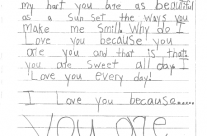 my hart you are as beautiful
as a sun set the ways you
make me smile Why do I
Love you because you
are you and that is that
you are sweet all day I
Love you every day!
I Love you because.....
You are